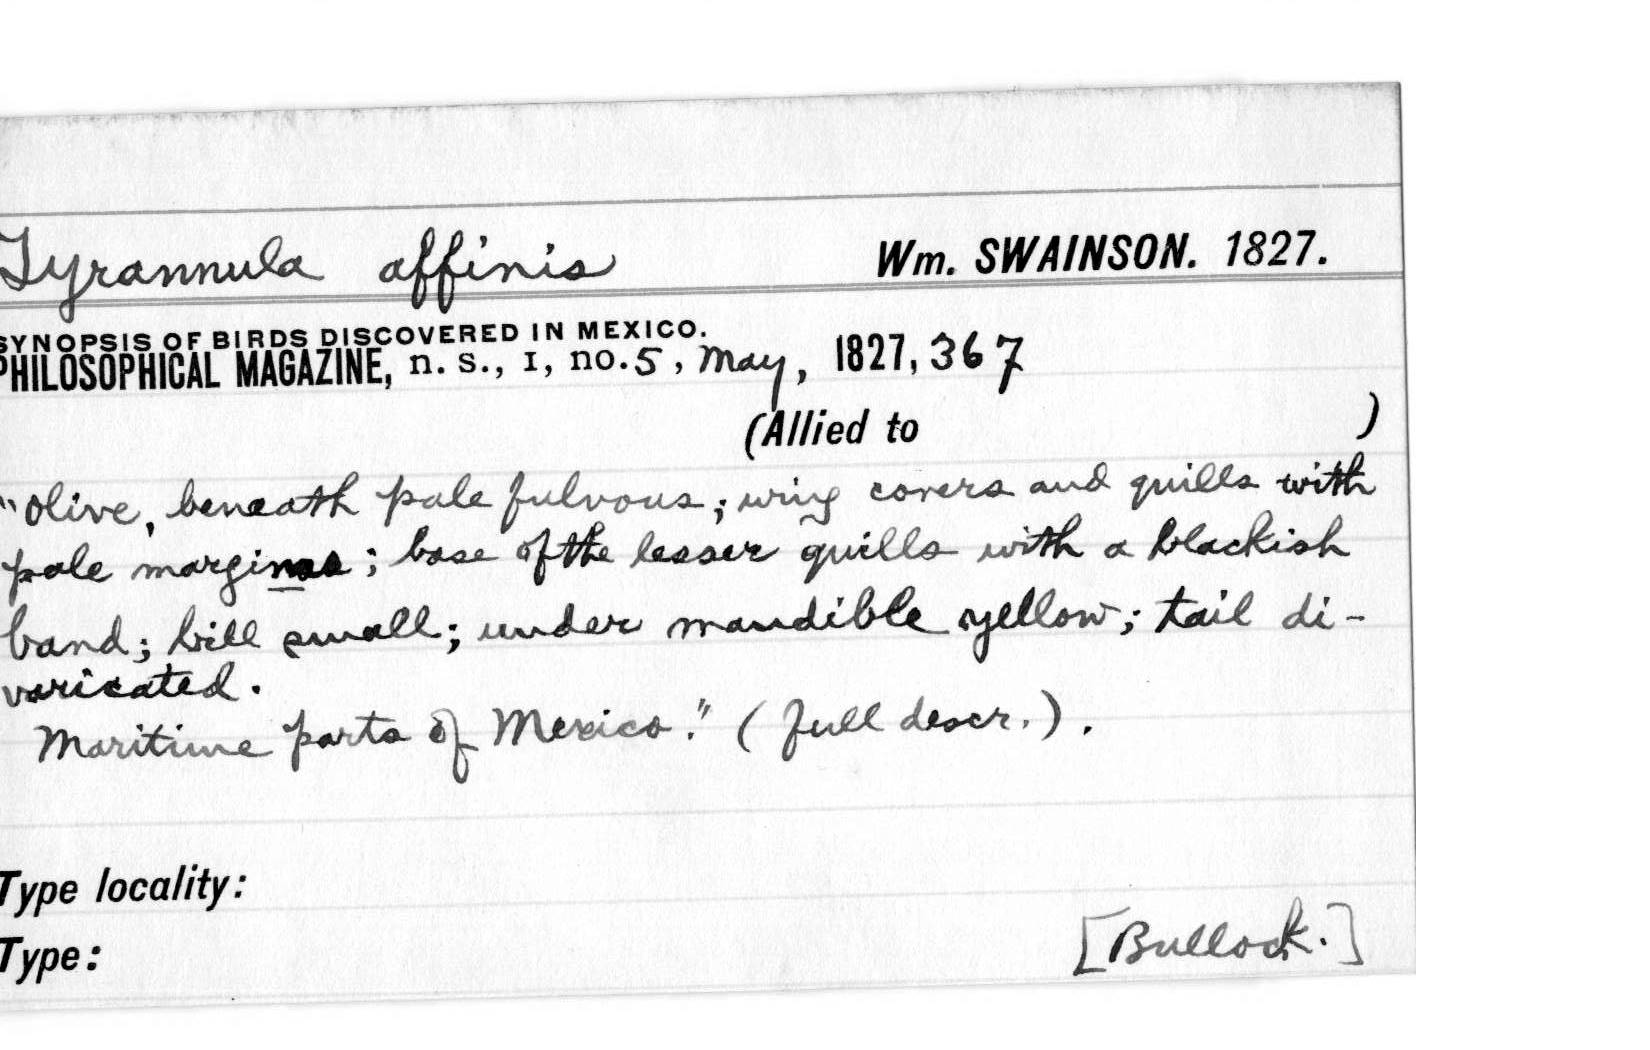 Tyrannula affinis Wm. SWAINSON. 1827.
SYNOPSIS OF BIRDS DISCOVERED IN MEXICO.
PHILOSOPHICAL MAGAZINE, n. s., I, no. 5, May, 1827, 367
(Allied to )
"Olive, beneath pale fulvous; wing covers and quills with
pale margins; base of the lesser quills with a blackish
band; bill small; under mandible yellow; tail di-
varicated.
Maritime parts of Mexico." (full descr.).
Type locality:
Type: [Bullock.]